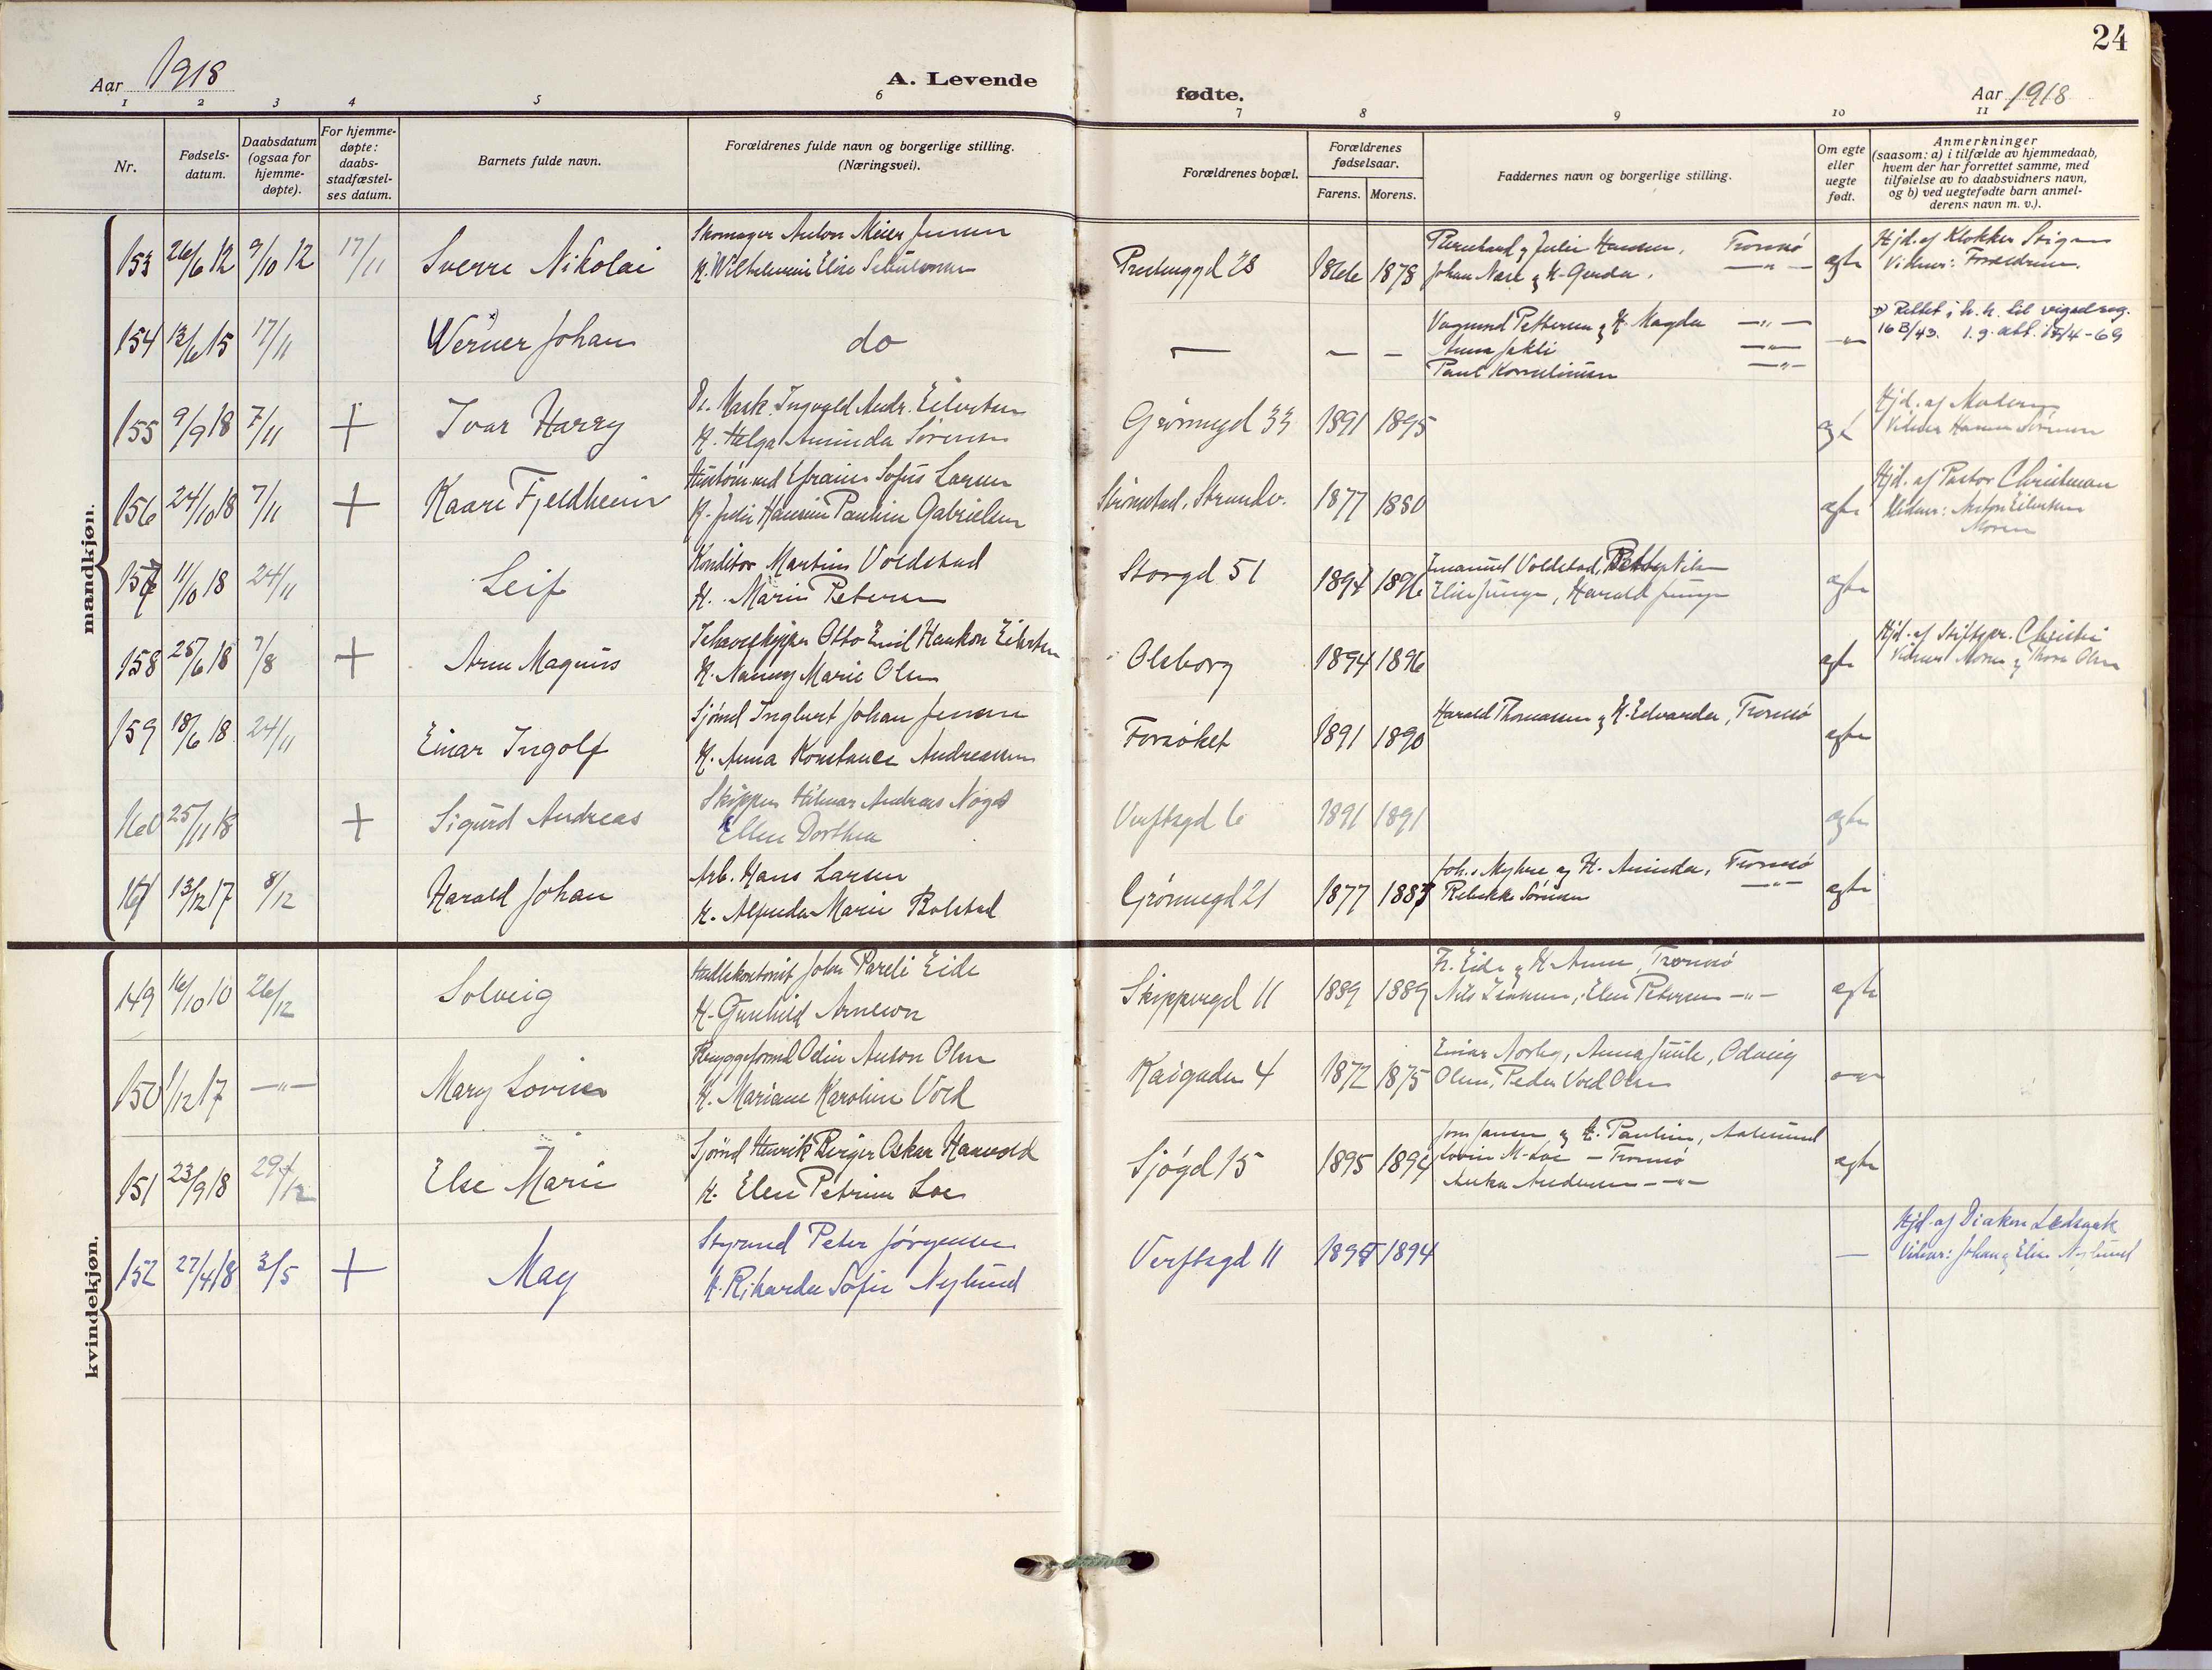 24
Aar 1918
A. Levende
fødte.
Aar 1918
1 2 3 4 5 6 7 8 9 10 11
Nr.
Fødsels-
datum.
Daabsdatum
(ogsaa for
hjemme-
døpte).
For hjemme-
døpte:
daabs-
stadfæstel-
ses datum.
Barnets fulde navn.
Forældrenes fulde navn og borgerlige stilling.
(Næringsvei).
Forældrenes bopæl.
Forældrenes
fødselsaar.
Farens. Morens.
Faddernes navn og borgerlige stilling.
Om egte
eller
uegte
født.
Anmerkninger
(saasom: a) i tilfælde av hjemmedaab,
hvem der har forrettet samme, med
tilføielse av to daabsvidners navn,
og b) ved uegtefødte barn anmel-
derens navn m. v.).
mandkjøn.
153 26/6 12 9/10 12 17/11 Sverre Nikolai
Skomager Anton Meier Jensen
H. Wilhelmine Elise
1866 1878
Johan Næss og H. Gerda. Tromsø
egte
Hjd. af Klokker Stigen
Vidner: Forældrene.
154 13/6 15 17/11 Werner Johan do
Pettersen og H. Magda —"—
Anna Jakli —"—
Paul Kornelinsen —"—
Rettet i h. h. til
16 B/43. 1.g. att. 15/4-69
155 9/9 18 7/11 + Ivar Harry
Ingvald Andr. Eilertsen
H. Helga Aminda Sørensen
Grønnegd 33 1891 1895 egt
Hjd. af Moderen
156 24/10 18 7/11 + Kaare Fjeldheim
Efraim Sofus Larsen
H. Julie Hansine Pauline Gabrielsen
Strømstad, Strandv. 1877 1880 egte
Hjd. af Pastor Christiansen
Vidner: Anton Eilertsen
Moren
157 11/10 18 24/11 Leif
Konditor Martin Voldstad
H. Marie Petersen
Storgd 51 1894 1896
Emanuel Voldstad, Betty Nilsen
egte
158 25/6 18 7/8 + Arne Magnus
Otto Emil Haakon Eilertsen
H. Nanny Marie Olsen
Olsborg 1894 1896 egte
Hjd. af Stiftspr. Christie
Vidner Moren og Thora Olsen
159 18/6 18 24/11 Einar Ingolf
Sjømd Ingbert Johan Jensen
H. Anna Konstance Andreassen
Forsøket 1891 1890
Harald Thomassen og H. Edvarda, Tromsø
egte
160 25/11 18 + Sigurd Andreas
Skipper Hilmar Andreas
Ellen Dorthea
Verftsgd 6 1891 1891 egte
161 13/12 17 8/12 Harald Johan
Arb. Hans Larsen
H. Alfrida Marie Bolstad
Grønnegd 21 1877 1883
Joh. Myhre og H. Aminda, Tromsø
Rebekka Sørensen —"—
egte
kvindekjøn.
149 16/10 10 26/12 Solveig
John Pareli Eide
H. Gunhild Arneson
Skippergd 11 1889 1889
Fr. Eide og H. Anna, Tromsø
Nils Isaksen, Elen Petersen —"—
egte
150 1/12 17 —"— Mary Lovise
Bryggeformd Odin Anton Olsen
H. Mariane Karoline Vold
Kaigaden 4 1872 1875
Einar Norby, Anna Juul, Odveig
Olsen, Peder Vold Olsen
151 23/9 18 29/12 Else Marie
Sjømd Henrik Birger Oskar
H. Elen Petrine Loe
Sjøgd 15 1895 1894
Jørn Jansen og H. Pauline, Aalesund
Lovise M. Loe — Tromsø
Anka Andersen —"—
egte
152 27/4 18 3/5 + May
Styrmd Peter Jørgensen
H. Rikarda Sofie Nylund
Verftsgd 11 1895 1894 —
Hjd. af Diakon
Vidner: Johan og Elise Nylund